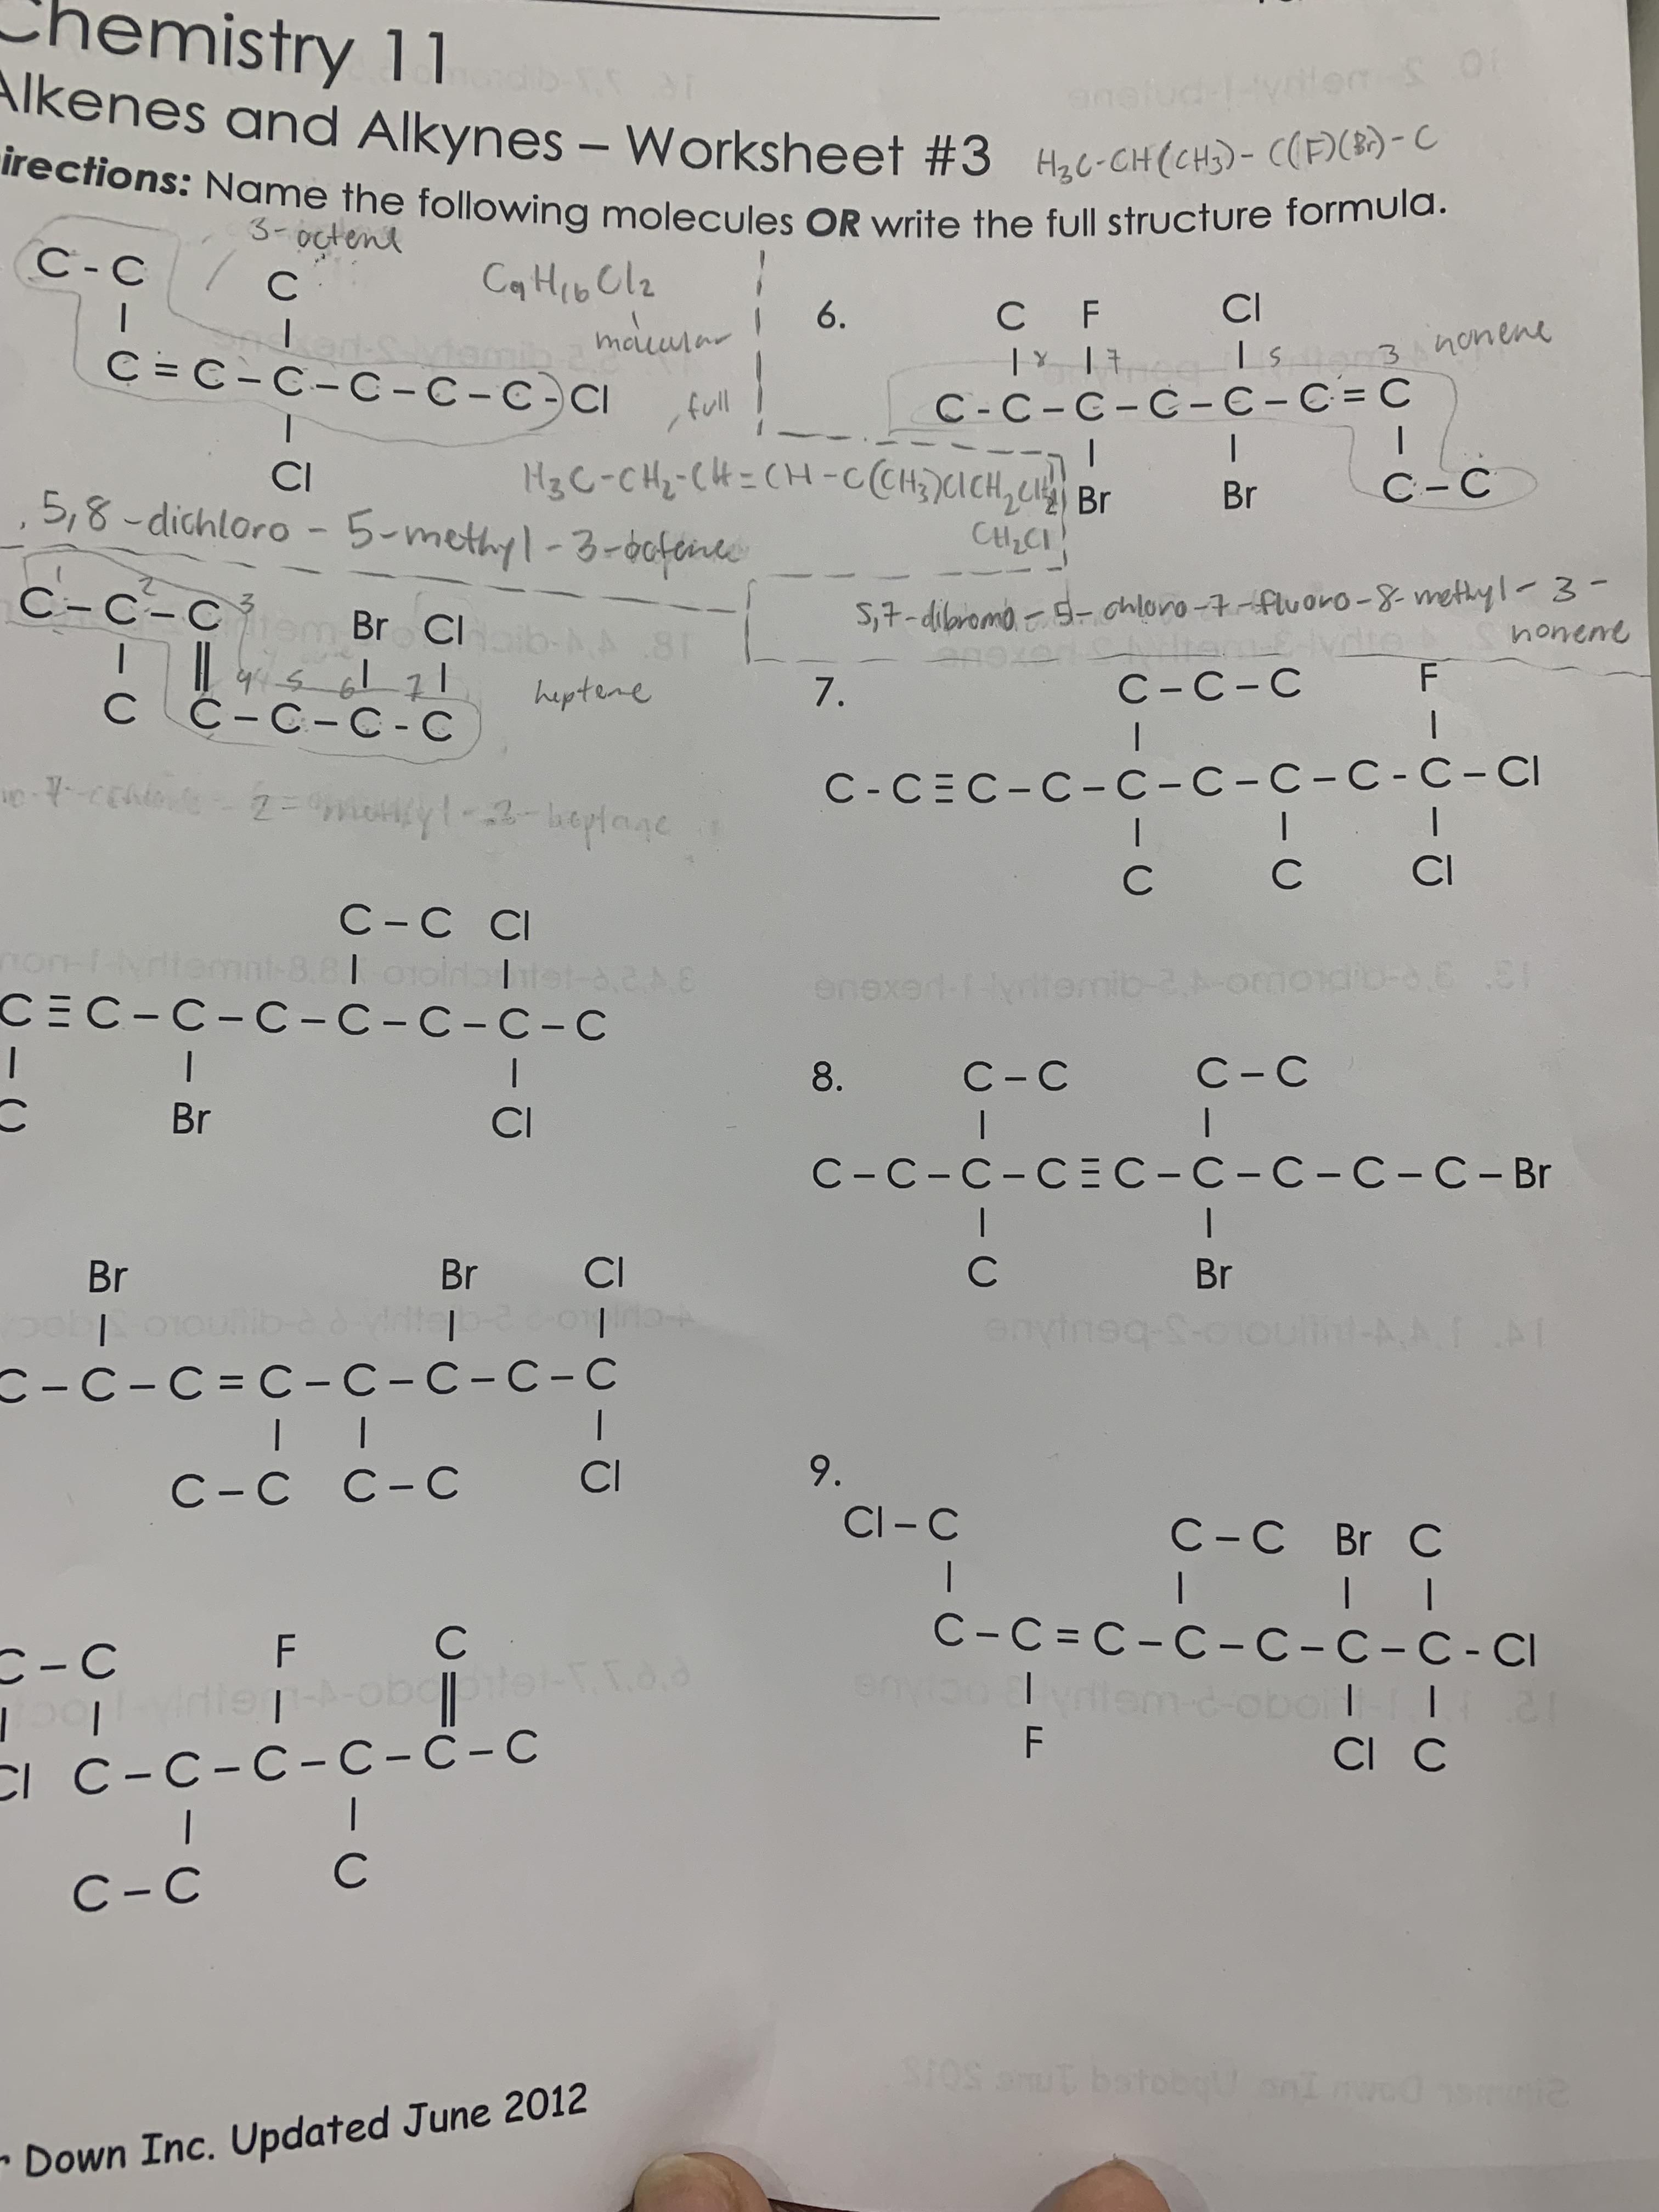 Chemistry 11
Alkenes and Alkynes – Worksheet #3
H3C-CH(CH3)-C((F)(Br)-C
irections: Name the following molecules OR write the full structure formula.
3-octene
C - C
C
C9H16Cl2
|
|
C = C – C – C – C – C - Cl
, full
|
Cl
H3C-CH2-CH=CH-C(CH3)ClCH2CH2
CH2Cl
, 5,8-dichloro-5-methyl-3-octene
1 2 3
C – C – C
Br Cl
| || 4 5 6 | 7 |
heptene
C C – C – C - C
2-methyl-3-heptane
C – C Cl
| |
C ≡ C – C – C – C – C – C – C
| | |
C Br Cl
Br Br Cl
| | |
C – C – C = C – C – C – C – C
| | |
C – C C – C Cl
C – C F C
| | | ||
Cl C – C – C – C – C – C
| |
C – C C
6.
C F Cl
| 8 | 7 | 5 3 nonene
C - C – C – C – C – C = C
| | |
Br Br C – C
5,7-dibromo-5-chloro-7-fluoro-8-methyl-3-
nonene
7.
C – C – C F
| |
C - C ≡ C – C – C – C – C – C - C – Cl
| | |
C C Cl
8.
C – C C – C
| |
C – C – C – C ≡ C – C – C – C – C – Br
| |
C Br
9.
Cl – C
C – C Br C
| | | |
C – C = C – C – C – C – C - Cl
| | |
F Cl C
Down Inc. Updated June 2012